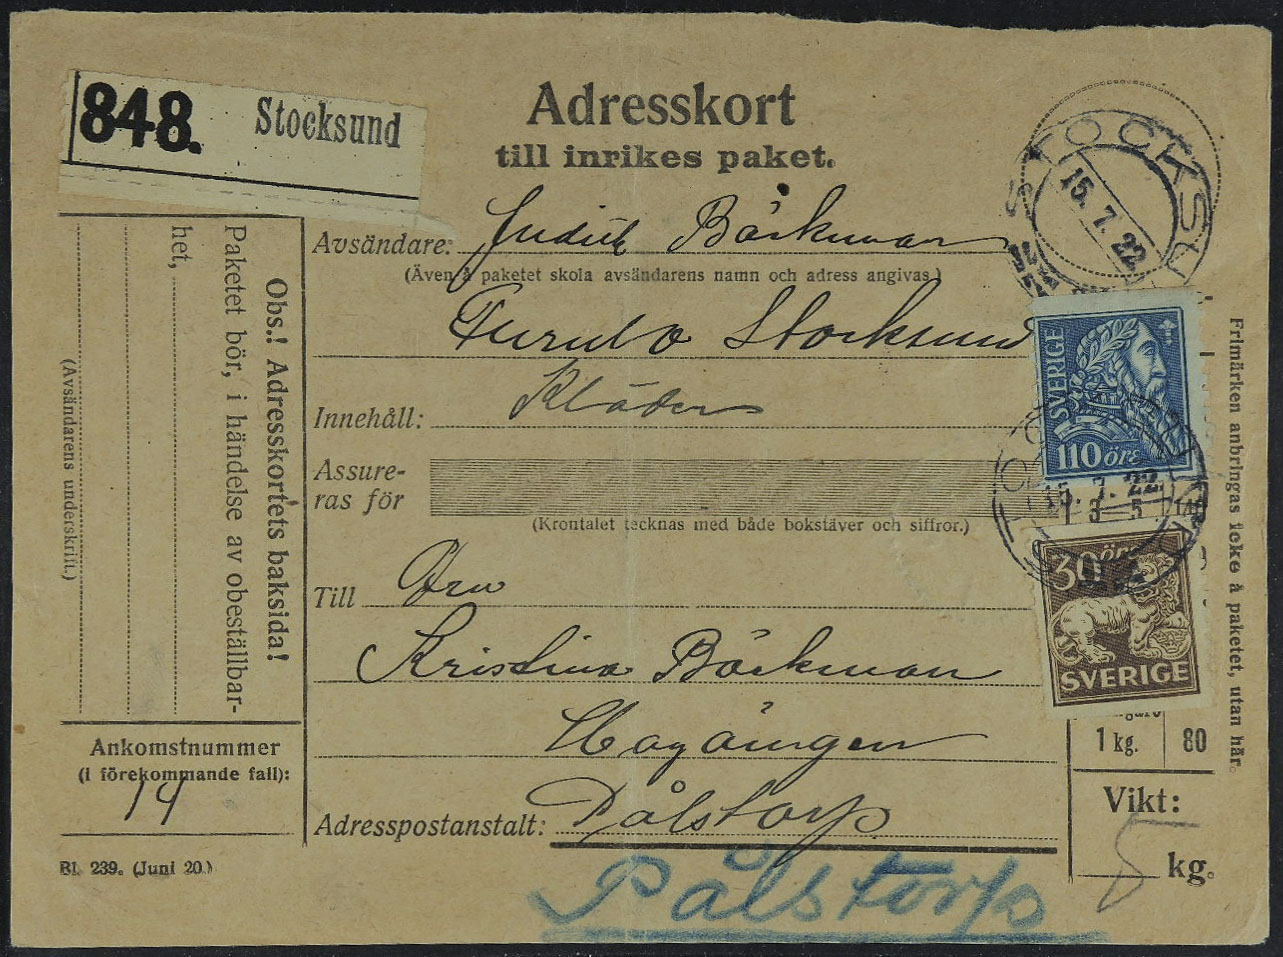 848. Stocksund
Adresskort
till inrikes paket.
STOCKSU
15. 7. 22
Avsändare: Judith Bäckman
(Även å paketet skola avsändarens namn och adress angivas.)
Stocksund
Innehåll: Kläder
Assure-
ras för
(Krontalet tecknas med både bokstäver och siffror.)
Till Fru
Kristina Bäckman
Adresspostanstalt: Pålstorp
Pålstorp
Obs.! Adresskortets baksida!
Paketet bör, i händelse av obeställbar-
het,
(Avsändarens underskrift.)
Ankomstnummer
(i förekommande fall):
14
Bl. 239. (Juni 20.)
SVERIGE
110 öre
15. 7. 22
3 - 5
30 öre
SVERIGE
1 kg. 80
Vikt:
5 kg.
Frimärken anbringas icke å paketet, utan här.